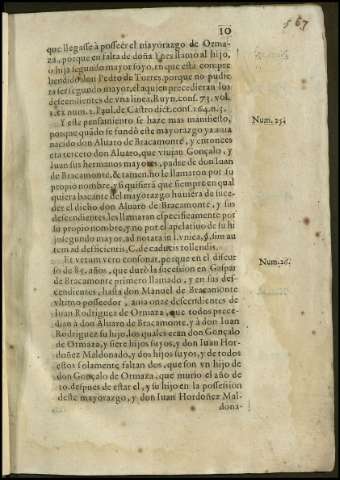 10
567
que llegasse à posseer el mayorazgo de Ormaza
, porque en falta de doña Ynes llamo al hijo,
o hija segundo mayor suyo, en que está comprehendido
don Pedro de Torres, porque no pudiera
ser segundo mayor, el a quien precedieran los
descendientes de vna linea, Ruyn. cons. 73. vol.
1. ex num. 1. Paul. de Castro dict. cons. 164. n. 5.
Y este pensamiento se haze mas manifiesto, Num. 25.
porque quãdo se fundò este mayorazgo ya auia
nacido don Aluaro de Bracamonte, y entonces
era tercero don Aluaro, que viuian Gonçalo, y
Iuan sus hermanos mayores, padre de don Iuan
de Bracamonte, & tamen, no le llamaron por su
proprio nombre, y si quisiera que siempre en qualquiera
bacante del mayorazgo huuiera de suceder
el dicho don Aluaro de Bracamonte, y sus
descendientes, los llamaran especificamente por
su proprio nombre, y no por el apelatiuo de su hijo
segundo mayor, ad notata in l. vnica, §. sin autem
ad deficientis, C. de caducis tollendis.
Et verum vero consonat, porque en el discurso Num. 26.
de 85. años, que durò la sucession en Gaspar
de Bracamonte primero llamado, y en sus descendientes
, hasta don Manuel de Bracamonte
vltimo posseedor, auia onze descendientes de
Iuan Rodriguez de Ormaza, que todos precedian
à don Aluaro de Bracamonte, y à don Iuan
Rodriguez su hijo, los quales eran don Gonçalo
de Ormaza, y siete hijos suyos, y don Iuan Hordoñez
Maldonado, y dos hijos suyos, y de todos
estos solamente faltan dos, que son vn hijo de
don Gonçalo de Ormaza, que murio el año de
20. despues de estar el, y su hijo en la possession
deste mayorazgo, y don Iuan Hordoñez Maldona-